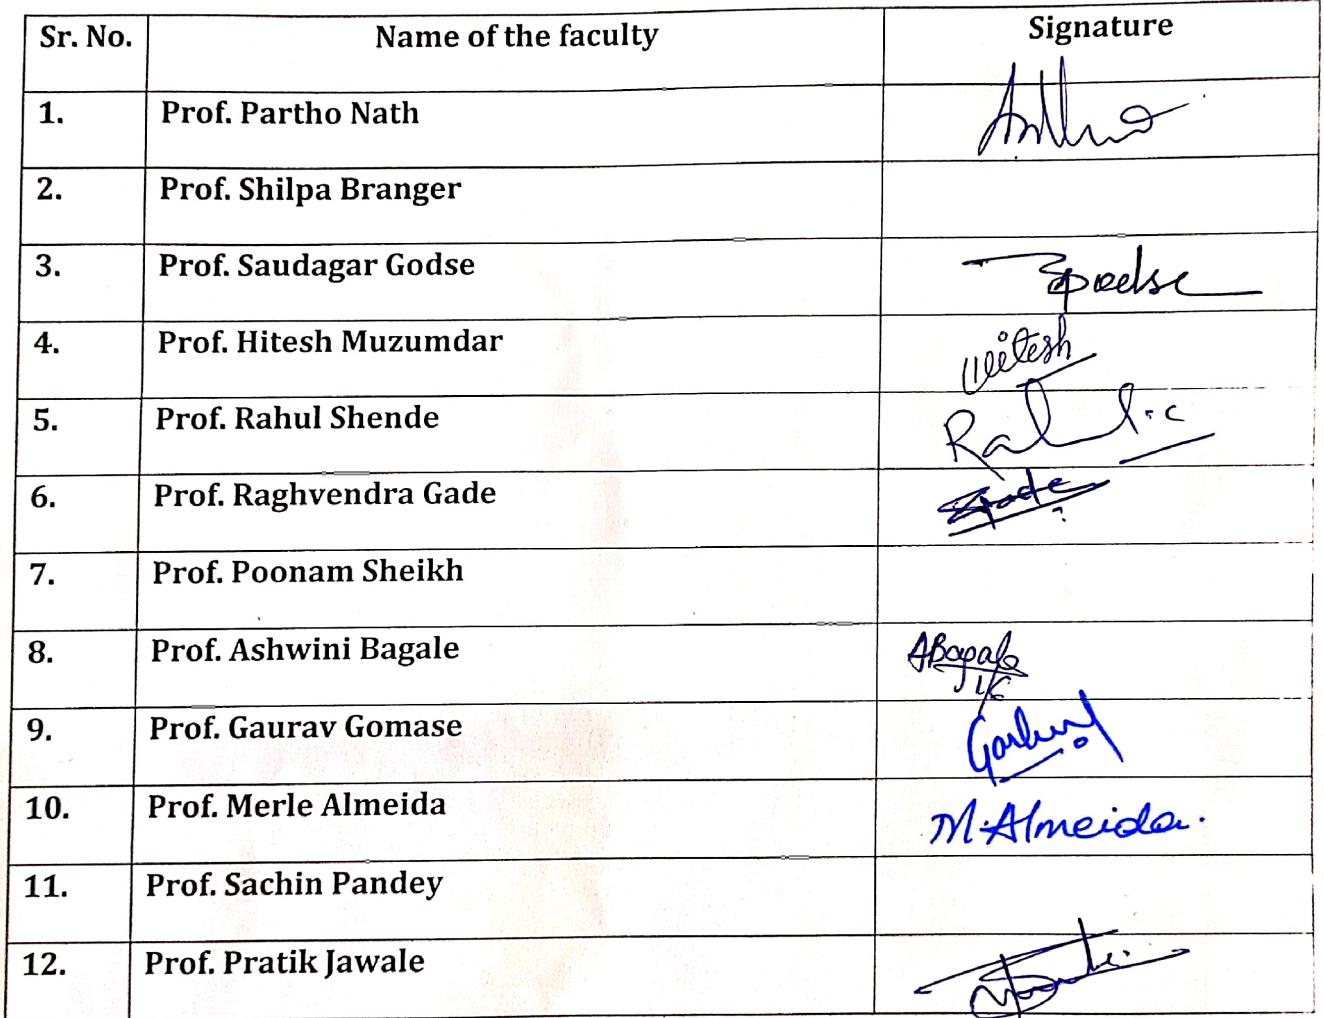 Sr. No. Name of the faculty Signature
1. Prof. Partho Nath
2. Prof. Shilpa Branger
3. Prof. Saudagar Godse
4. Prof. Hitesh Muzumdar Hitesh
5. Prof. Rahul Shende
6. Prof. Raghvendra Gade
7. Prof. Poonam Sheikh
8. Prof. Ashwini Bagale ABagale
9. Prof. Gaurav Gomase
10. Prof. Merle Almeida M.Almeida.
11. Prof. Sachin Pandey
12. Prof. Pratik Jawale